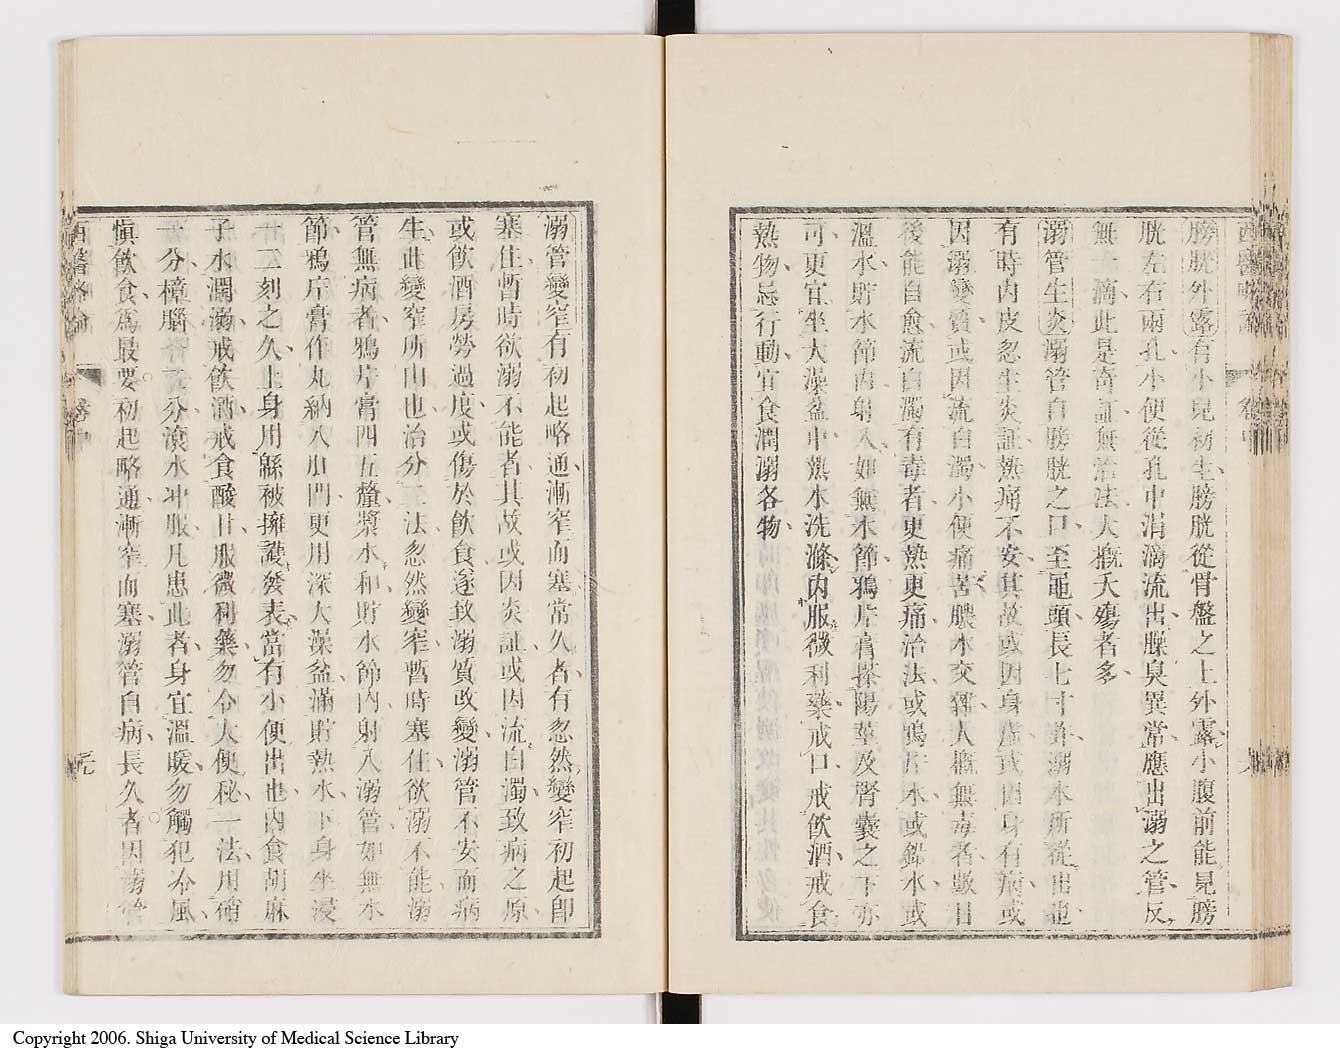 膀胱外露有小兒初生膀胱從骨盤之上外露小腹前能見膀
胱左右兩孔小便從孔中涓滴流出臊臭異常應出溺之管反
無一滴此是奇証無治法大概夭殤者多
溺管生炎溺管自膀胱之口至龜頭長七寸許溺水所從出也
有時內皮忽生炎証熱痛不安其故或因身虛或因身有病或
因溺變質或因流白濁小便痛苦膿水交雜人概無毒者數日
後能自愈流白濁有毒者更熱更痛治法或鴉片水或鉛水或
溫水貯水節內射入如無水節鴉片膏搽陽莖及腎囊之下亦
可更宜坐大澡盆中熱水洗滌內服微利藥戒口戒飲酒戒食
熱物忌行動宜食潤溺各物
溺管變窄有初起略通漸窄而塞常久者有忽然變窄初起即
塞住暫時欲溺不能者其故或因炎証或因流白濁致病之原
或飲酒房勞過度或傷於飲食遂致溺質改變溺管不安而病
生此變窄所由也治分二法忽然變窄暫時塞住欲溺不能溺
管無病者鴉片膏四五釐漿水和貯水節內射入溺管如無水
節鴉片膏作丸納入肛門更用深大澡盆滿貯熱水下身坐浸
一二刻之久上身用緜被擁護發表當有小便出也內食胡麻
子水潤溺戒飲酒戒食酸甘服微利藥勿令大便秘一法用硝
一分樟腦二分滾水冲服凡患此者身宜溫暖勿觸犯冷風
慎飲食爲最要初起略通漸窄而塞溺管自病長久者因溺管
西醫略論 卷中